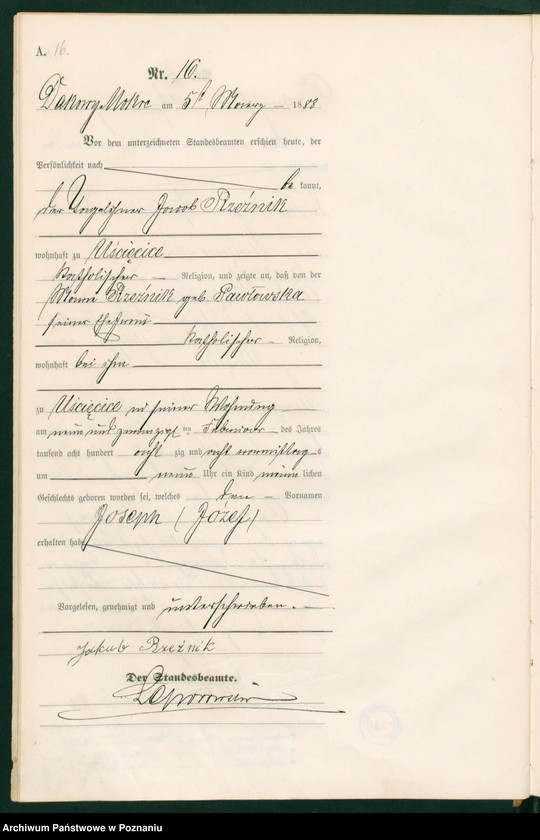 A. 16.
Nr. 16.
Dakowy Mokre am 5ten März 1888
Vor dem unterzeichneten Standesbeamten erschien heute, der
Persönlichkeit nach
be kannt,
der Tagelöhner Jacob Rzeźnik
wohnhaft zu Uścięcice
katholischer Religion, und zeigte an, daß von der
Rzeźnik geb. Pawłowska
seiner Ehefrau
katholischer Religion,
wohnhaft bei ihm
zu Uścięcice in seiner Wohnung
am neun und zwanzigsten Februar des Jahres
tausend acht hundert acht zig und acht vormittags
um neun Uhr ein Kind männ lichen
Geschlechts geboren worden sei, welches den Vornamen
Joseph (Józef)
erhalten habe
Vorgelesen, genehmigt und unterschrieben.
Jakub Rzeźnik
Der Standesbeamte.
Archiwum Państwowe w Poznaniu